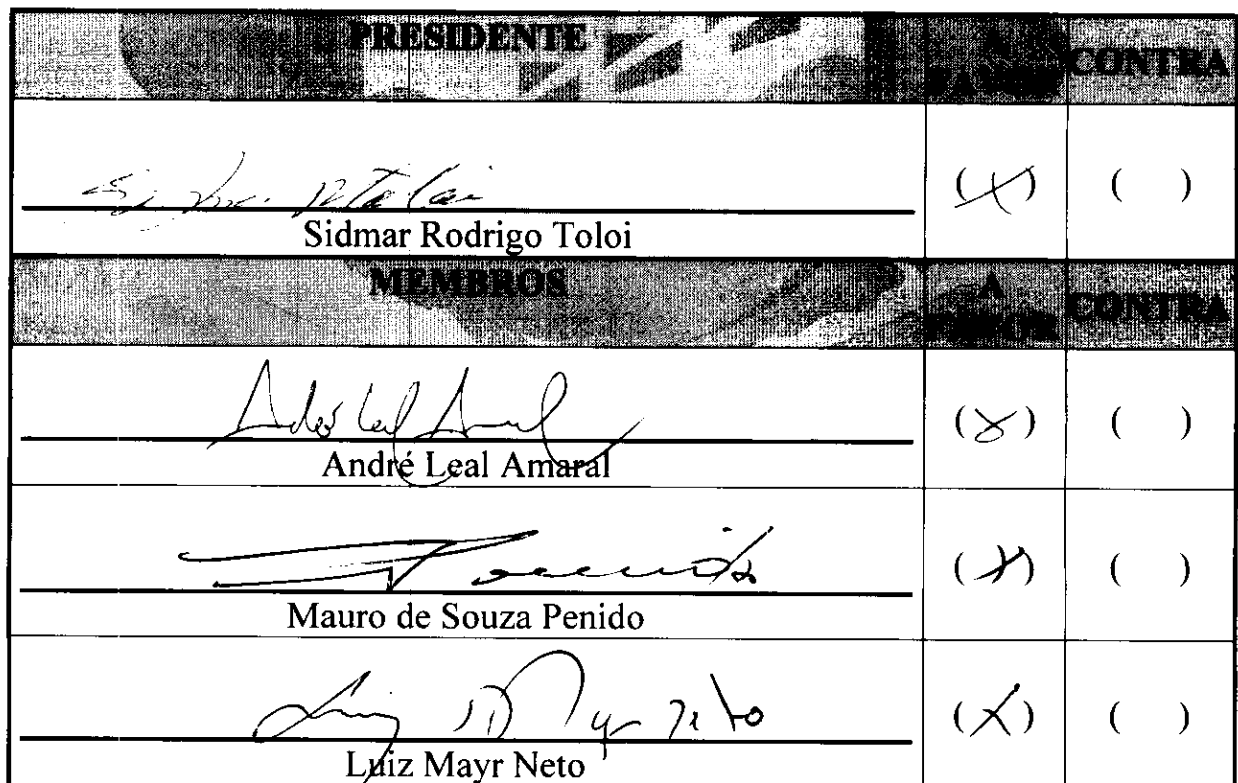 PRESIDENTE A FAVOR CONTRA
(X) ( )
Sidmar Rodrigo Toloi
MEMBROS A FAVOR CONTRA
(X) ( )
André Leal Amaral
(X) ( )
Mauro de Souza Penido
(X) ( )
Luiz Mayr Neto